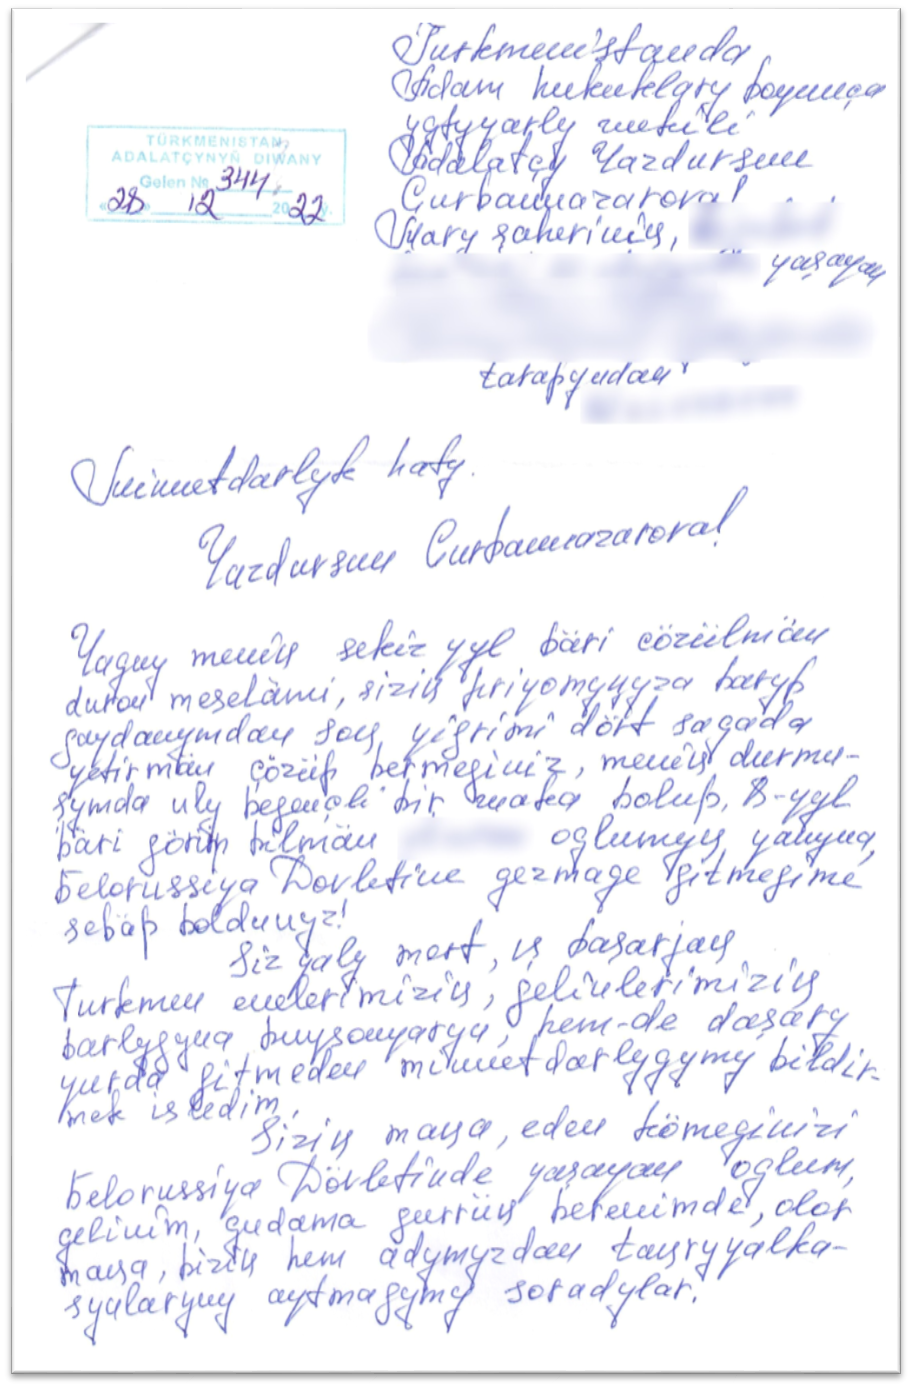 Türkmenistanda
Adam hukuklary boýunça
ygtyýarly wekili
Adalatçy Ýazdursun
Gurbannazarowa!
Mary şäheriniň,
ýaşaýan
tarapyndan
TÜRKMENISTAN
ADALATÇYNYŇ DIWANY
Gelen № 344
«28» 12 2022 ý.
Minnetdarlyk haty.
Ýazdursun Gurbannazarowa!
Ýagny meniň sekiz ýyl bäri çözülmän
duran meselämi, siziň priýomyňyza baryp
gaýdanymdan soň ýigrimi dört sagada
ýetirmän çözüp bermegiňiz, meniň durmu-
şymda uly begençli bir waka bolup, 8-ýyl
bäri görüp bilmän oglumyň ýanyna,
Belorussiýa Döwletine gezmäge gitmegime
sebäp bolduňyz!
Siz ýaly mert, iş başarjaň
Türkmen enelerimiziň, gelinlerimiziň
barlygyna buýsanýaryn, hem-de daşary
ýurda gitmeden minnetdarlygymy bildir-
mek isledim.
Siziň maňa, eden kömegiňizi
Belorussiýa Döwletinde ýaşaýan oglum,
gelinim, gudama gürrüň berenimde, olar
maňa, biziň hem adymyzdan taňryýalka-
synlaryny aýtmagymy soradylar.